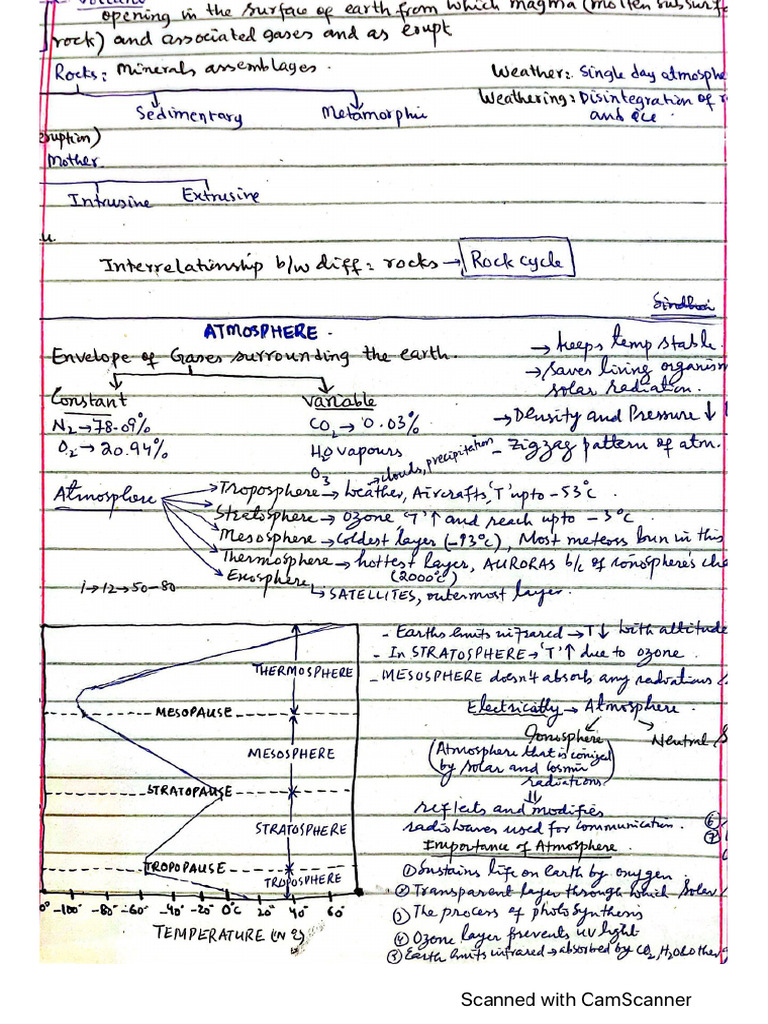 opening in the surface of earth from which magma (molten subsurf
rock) and associated gases and as erupt
Rocks: Minerals assemblages.
Weather: Single day atmosphe
Sedimentary
Metamorphic
Weathering: Disintegration of r
and ice
eruption)
Mother
Intrusine
Extrusine
Interrelationship b/w diff: rocks → Rock cycle
ATMOSPHERE.
Envelope of Gases surrounding the earth.
→ keeps temp stable.
→ Saves living organism
solar radiation.
Constant
Variable
N2 → 78.09%
CO2 → 0.03%
→ Density and Pressure ↓
O2 → 20.94%
H2O vapours
- zigzag pattern of atm.
O3
→ clouds, precipitation
Atmosphere
Troposphere → Weather, Aircrafts, 'T' upto -53°c.
Stratosphere → Ozone 'T'↑ and reach upto -3°c.
Mesosphere → Coldest layer (-93°c), Most meteors burn in this
Thermosphere → hottest layer, AURORAS b/c of ionosphere's cha
(2000°c)
Exosphere
↳ SATELLITES, outermost layer.
1→12→50-80
- Earths emits infrared → T↓ with altitude
- In STRATOSPHERE → 'T'↑ due to ozone.
- MESOSPHERE doesn't absorb any radiations
Electrically → Atmosphere.
Ionosphere
Neutral
(Atmosphere that is ionized
by solar and Cosmic
radiations)
reflects and modifies
radiowaves used for communication.
Importance of Atmosphere.
① Sustains life on Earth by oxygen
② Transparent layer through which Solar
③ The process of photosynthesis
④ Ozone layer prevents uv light
⑤ Earth emits infrared → absorbed by CO2, H2O & other
⑥
⑦
THERMOSPHERE
MESOPAUSE
MESOSPHERE
STRATOPAUSE
STRATOSPHERE
TROPOPAUSE
TROPOSPHERE
0° -100° -80° -60° -40° -20° 0°C 20° 40° 60°
TEMPERATURE (IN
Scanned with CamScanner